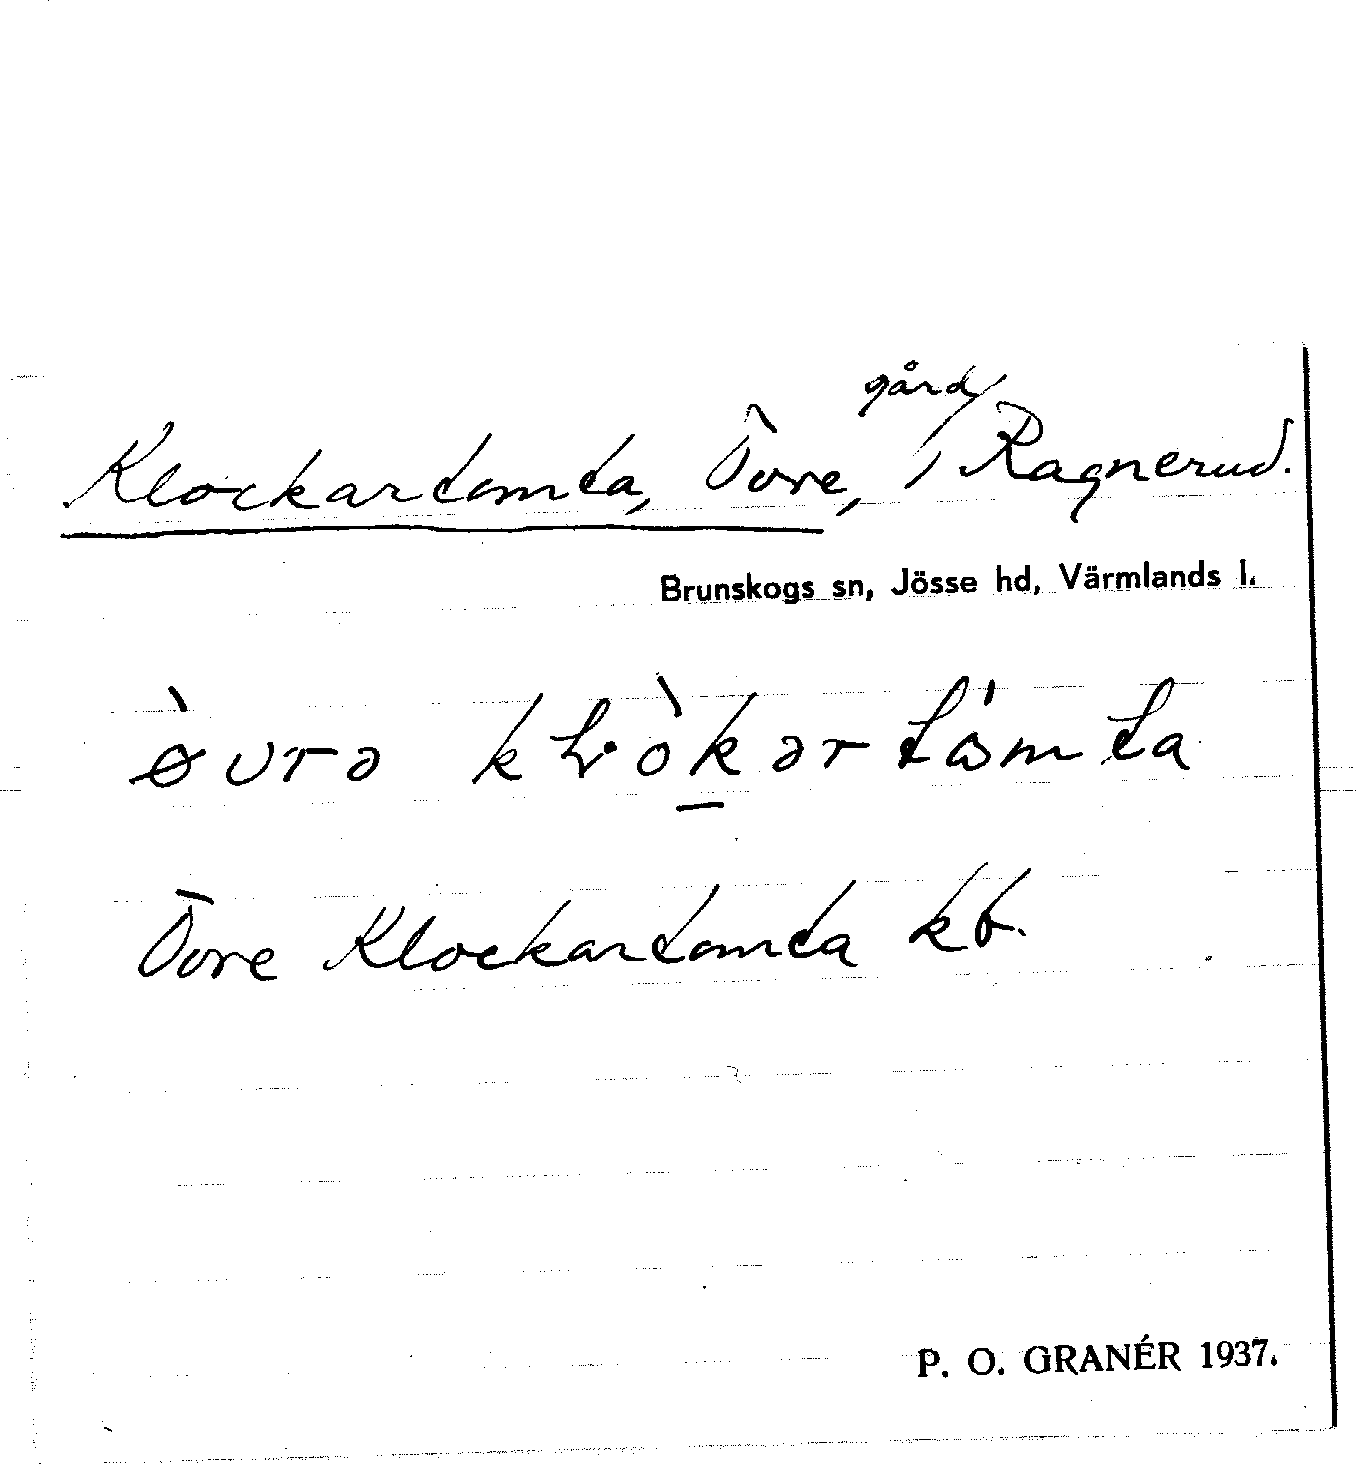 Klockartomta, Övre, gård, Ragnerud.
Brunskogs sn, Jösse hd, Värmlands l.
ø̀vrə kɫòkərtɷ́mta
Övre Klockartomta kb.
P. O. GRANÉR 1937.